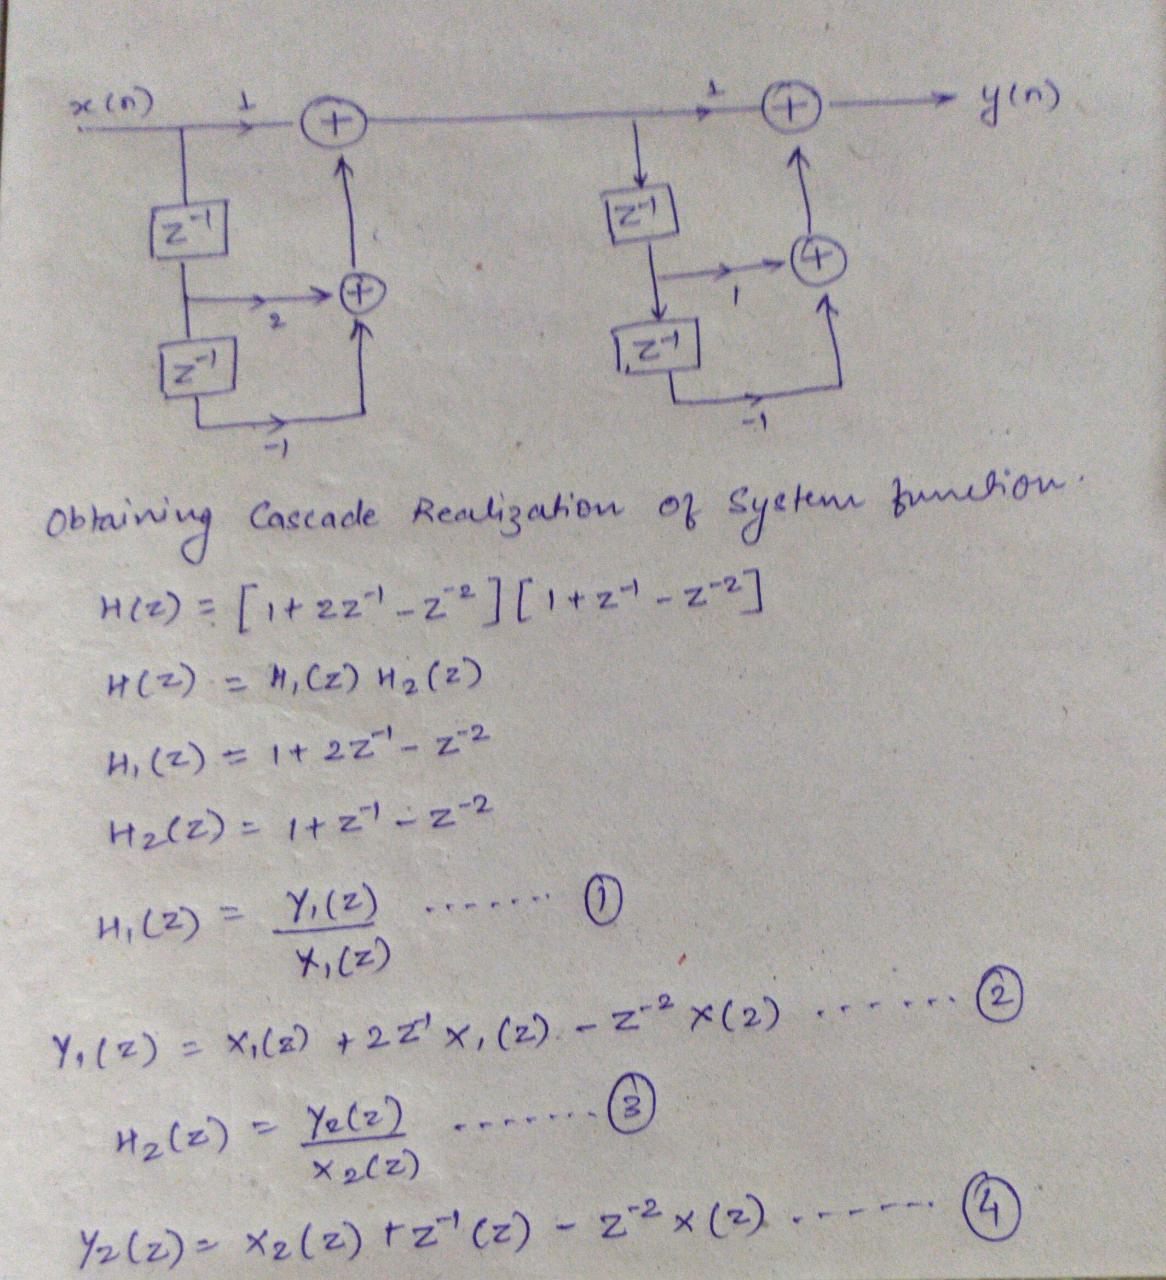 x(n) 1 + 1 + y(n)
z⁻¹ z⁻¹
2 + 1 +
z⁻¹ z⁻¹
-1 -1
Obtaining Cascade Realization of System function.
H(z) = [1+2z⁻¹-z⁻²][1+z⁻¹-z⁻²]
H(z) = H₁(z) H₂(z)
H₁(z) = 1+2z⁻¹-z⁻²
H₂(z) = 1+z⁻¹-z⁻²
H₁(z) = Y₁(z)/X₁(z) ....... ①
Y₁(z) = X₁(z) + 2z⁻¹ X₁(z) - z⁻² X(z) ...... ②
H₂(z) = Y₂(z)/X₂(z) ....... ③
Y₂(z) = X₂(z) + z⁻¹(z) - z⁻² X(z) ....... ④